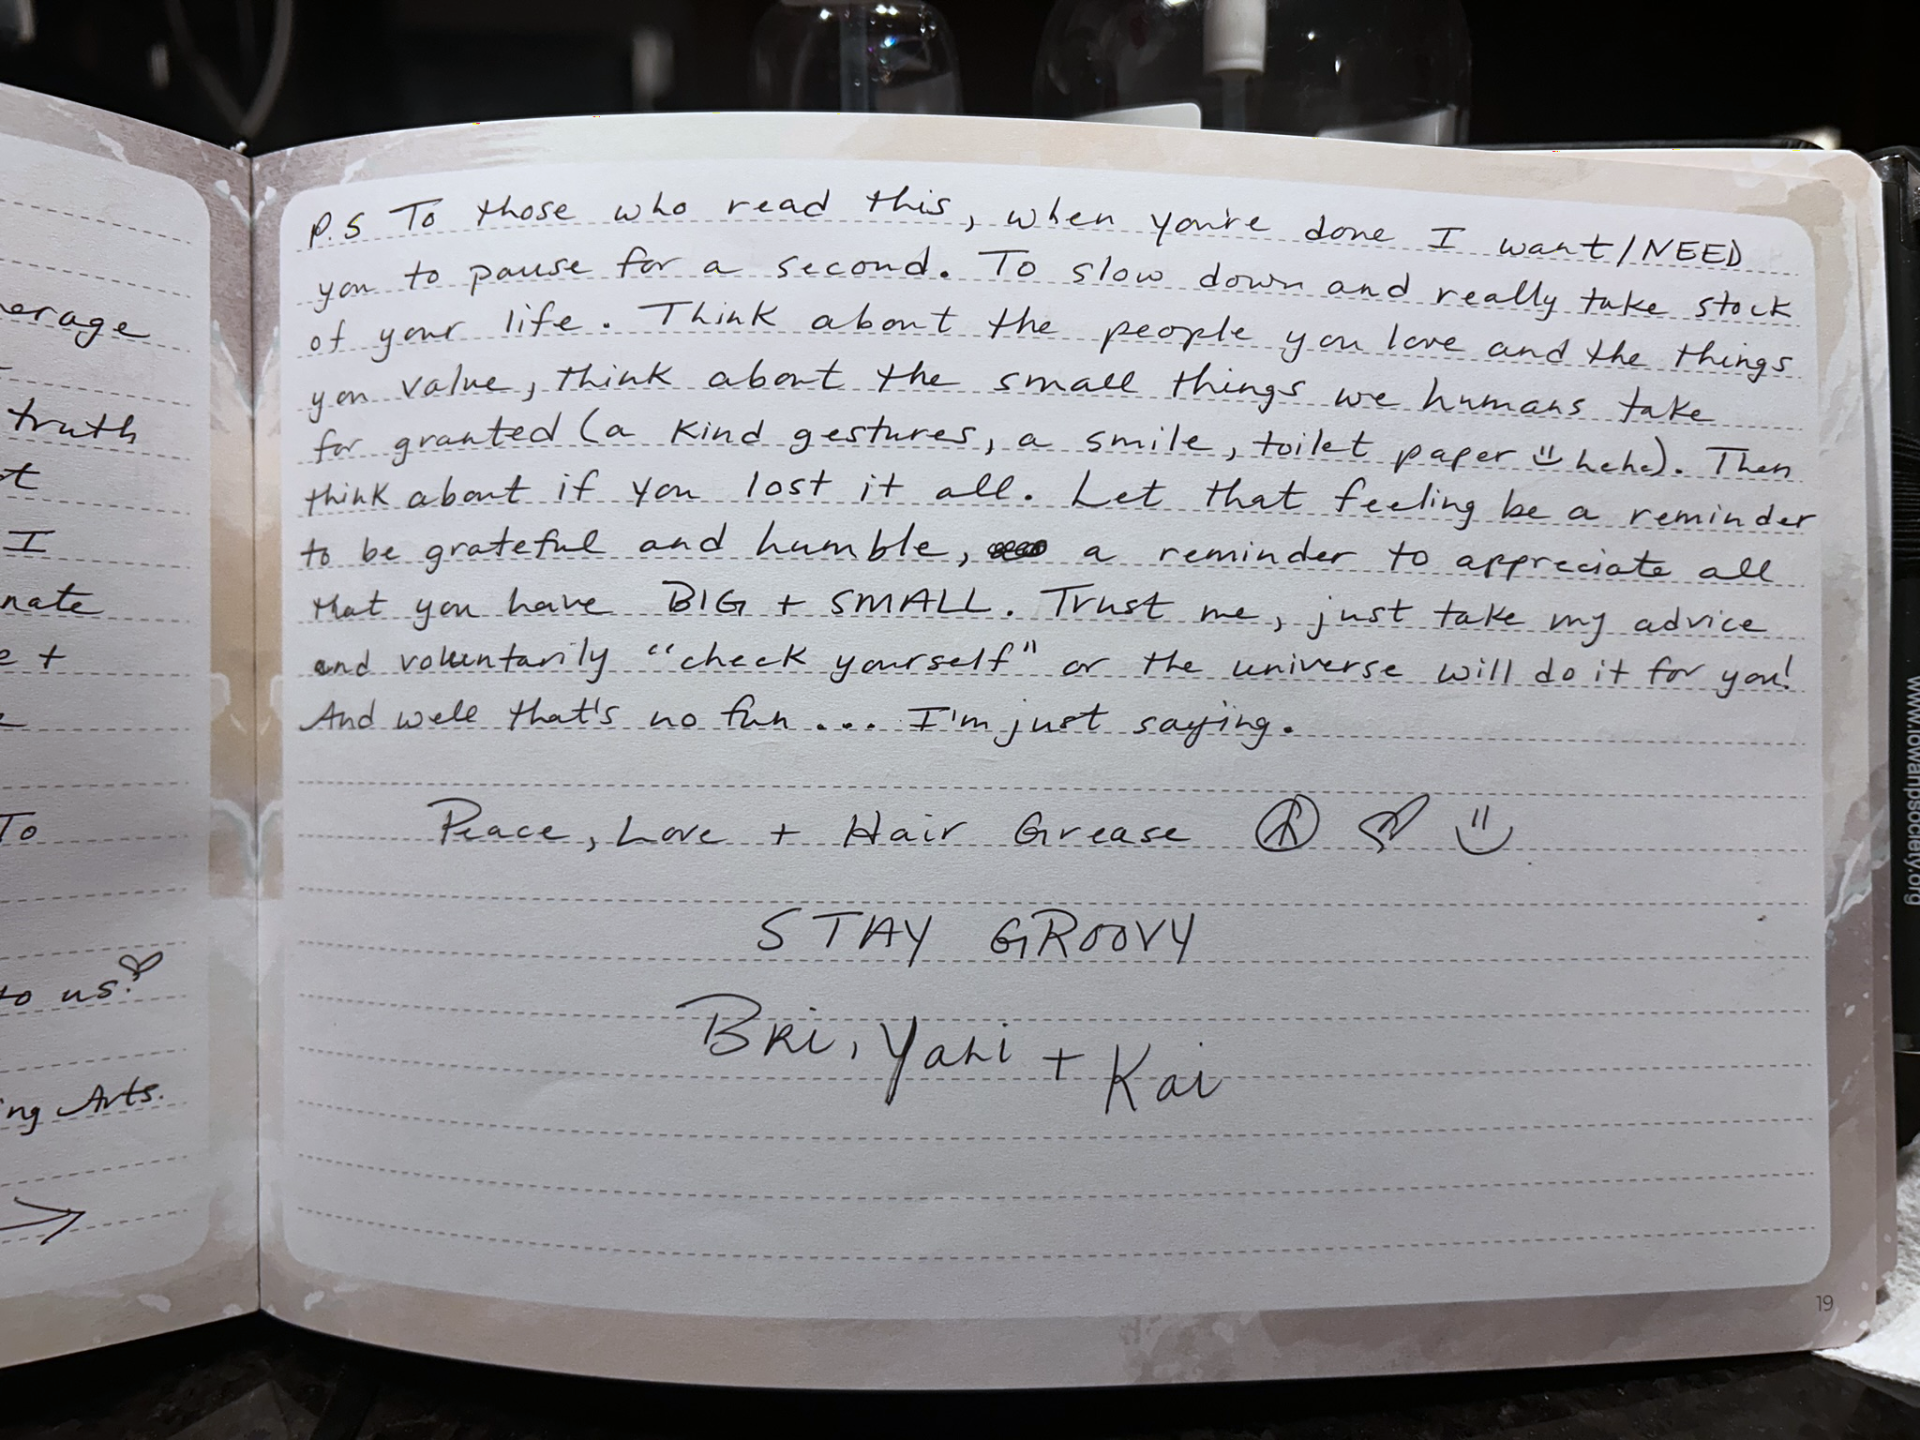 erage
truth
t
I
nate
e +
To
to us.
ing Arts.
P.S To those who read this, when you're done I want/NEED
you to pause for a second. To slow down and really take stock
of your life. Think about the people you love and the things
you value, think about the small things we humans take
for granted (a kind gestures, a smile, toilet paper hehe). Then
think about if you lost it all. Let that feeling be a reminder
to be grateful and humble, a reminder to appreciate all
that you have BIG + SMALL. Trust me, just take my advice
and voluntarily "check yourself" or the universe will do it for you!
And well that's no fun... I'm just saying.
Peace, Love + Hair Grease
STAY GROOVY
Bri, Yani + Kai
19
www.iowanpsociety.org